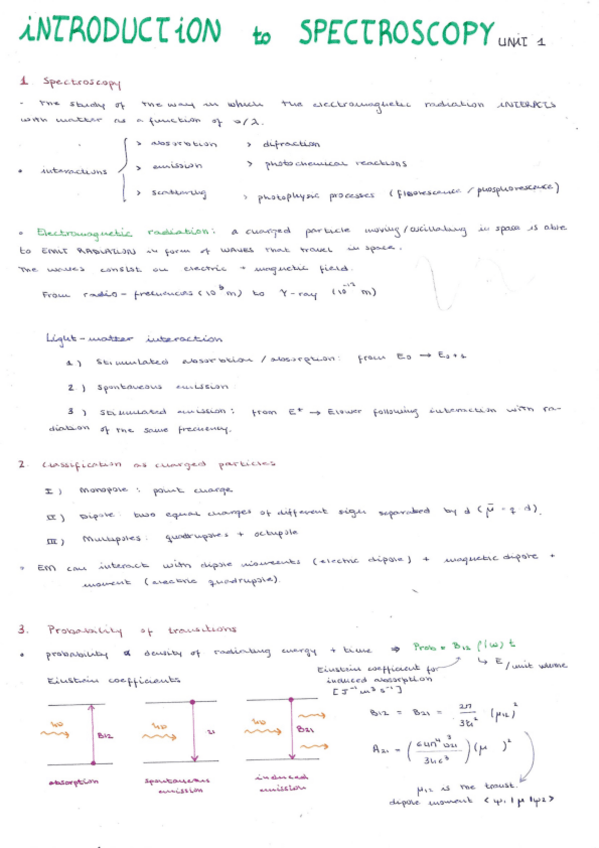 iNTRODUCTiON to SPECTROSCOPY UNIT 1
1 Spectroscopy
- The study of the way in which the electromagnetic radiation INTERACTS
with matter as a function of ν/λ.
> absorption > difraction
• interactions > emission > photochemical reactions
> scattering > photophysic processes (fluorescence / phosphorescence)
• Electromagnetic radiation: a charged particle moving/oscillating in space is able
to EMIT RADIATION in form of WAVES that travel in space.
The waves consist on electric + magnetic field.
From radio-frequencies (10 m) to γ-ray (10 m)
Light-matter interaction
1) Stimulated absorption / absorption: from E₀ → E₀₊₁
2) Spontaneous emission
3) Stimulated emission: from E* → Elower following interaction with ra-
diation of the same frecuency.
2. Classification as charged particles
I) Monopole: point charge
II) Dipole: two equal charges of different sign separated by d (μ̄ = q d).
III) Multipoles: quadrupoles + octupole
• EM can interact with dipole moments (electric dipole) + magnetic dipole +
moment (electric quadrupole).
3. Probability of transitions
• probability α density of radiating energy + time ⇒ Prob = B₁₂ (ω) t
Einstein coefficient for ↳ E/unit volume
Einstein coefficients induced absorption
[J⁻¹ m³ s⁻¹]
B₁₂ = B₂₁ = 2π/3ħ² (μ₁₂)²
B₁₂ B₂₁
A₂₁ = (μ )²
absorption spontaneous emission induced emission
μ₁₂ is the transt.
dipole moment <ψ₁|μ|ψ₂>